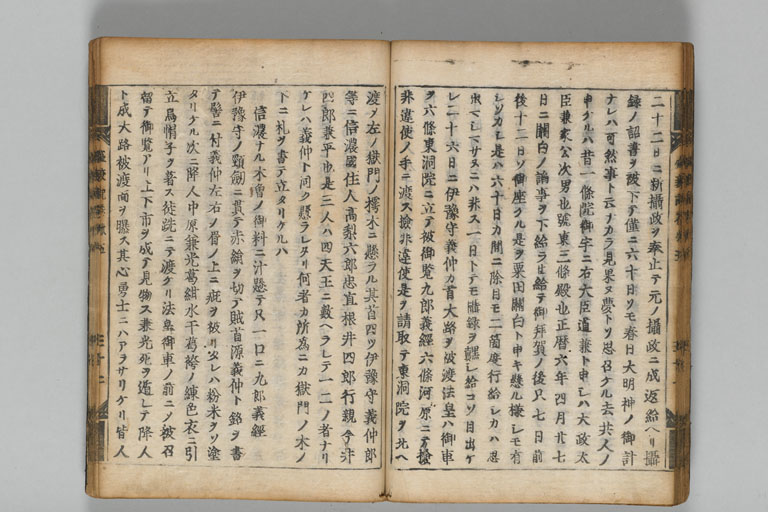 二十二日ニ新攝政ヲ奉止テ元ノ攝政ニ成返給ヘリ攝
録ノ詔書ヲ被下テ僅ニ六十日ソモ春日大明神ノ御計
ナレハ可然事ト云ナカラ見果ヌ夢トソ思召ケル去共人ノ
申ケルハ昔一條院御宇ニ右大臣道兼ト申シハ大政太
臣兼家公次男也號東三條殿也正暦六年四月廿七
日ニ關白ノ詣事ヲ下給ラセ給テ御拜賀ノ後只七日前
後十二日ソ御座ケル是ヲ粟田關白ト申キ縣ル樣レモ有
シソカシ是ハ六十日カ間ニ除目モ二箇度行給シカハ思
出モシマサヌニハ非ス一日トテモ攝録ヲ黷シ給コソ目出ケ
レ二十六日ニ伊豫守義仲カ首大路ヲ被渡法皇ハ御車
ヲ六條東洞院ニ立テ被御覽九郎義經六條河原ニテ檢
非違使ノ手ニ渡ス檢非違使是ヲ請取テ東洞院ヲ北ヘ
渡ヲ左ノ獄門ノ樗木ニ懸ラル其首四ツ伊豫守義仲郎
等ニ信濃國住人高梨六郎忠直根井四郎行親今井
四郎兼平也是三人ハ四天王ニ數ヘラレテ一二ノ者ナリ
ケレハ義仲ト同ク懸ラレタリ何者カ所為ニカ獄門ノ木ノ
下ニ札ヲ書テ立タリケルハ
信濃ナル木曾ノ御料ニ汁懸テ只一口ニ九郎義經
伊豫守ノ頸劔ニ貫テ赤絹ヲ切テ賊首源義仲ト銘ヲ書
テ髻ニ付義仲左右ノ眉ノ上ニ疵ヲ被リタレハ粉米ヲソ塗
タリケル次ニ降人中原兼光葛紺水干葛袴ノ練色衣ニ引
立烏帽子ヲ著ス徒跣ニテ渡ケリ法皇御車ノ前ニソ被召
留テ御覽アリ上下市ヲ成テ見物ス兼光死ヲ遁レテ降人
ト成大路被渡面ヲ曝ス其心勇士ニハアラサリケリ皆人